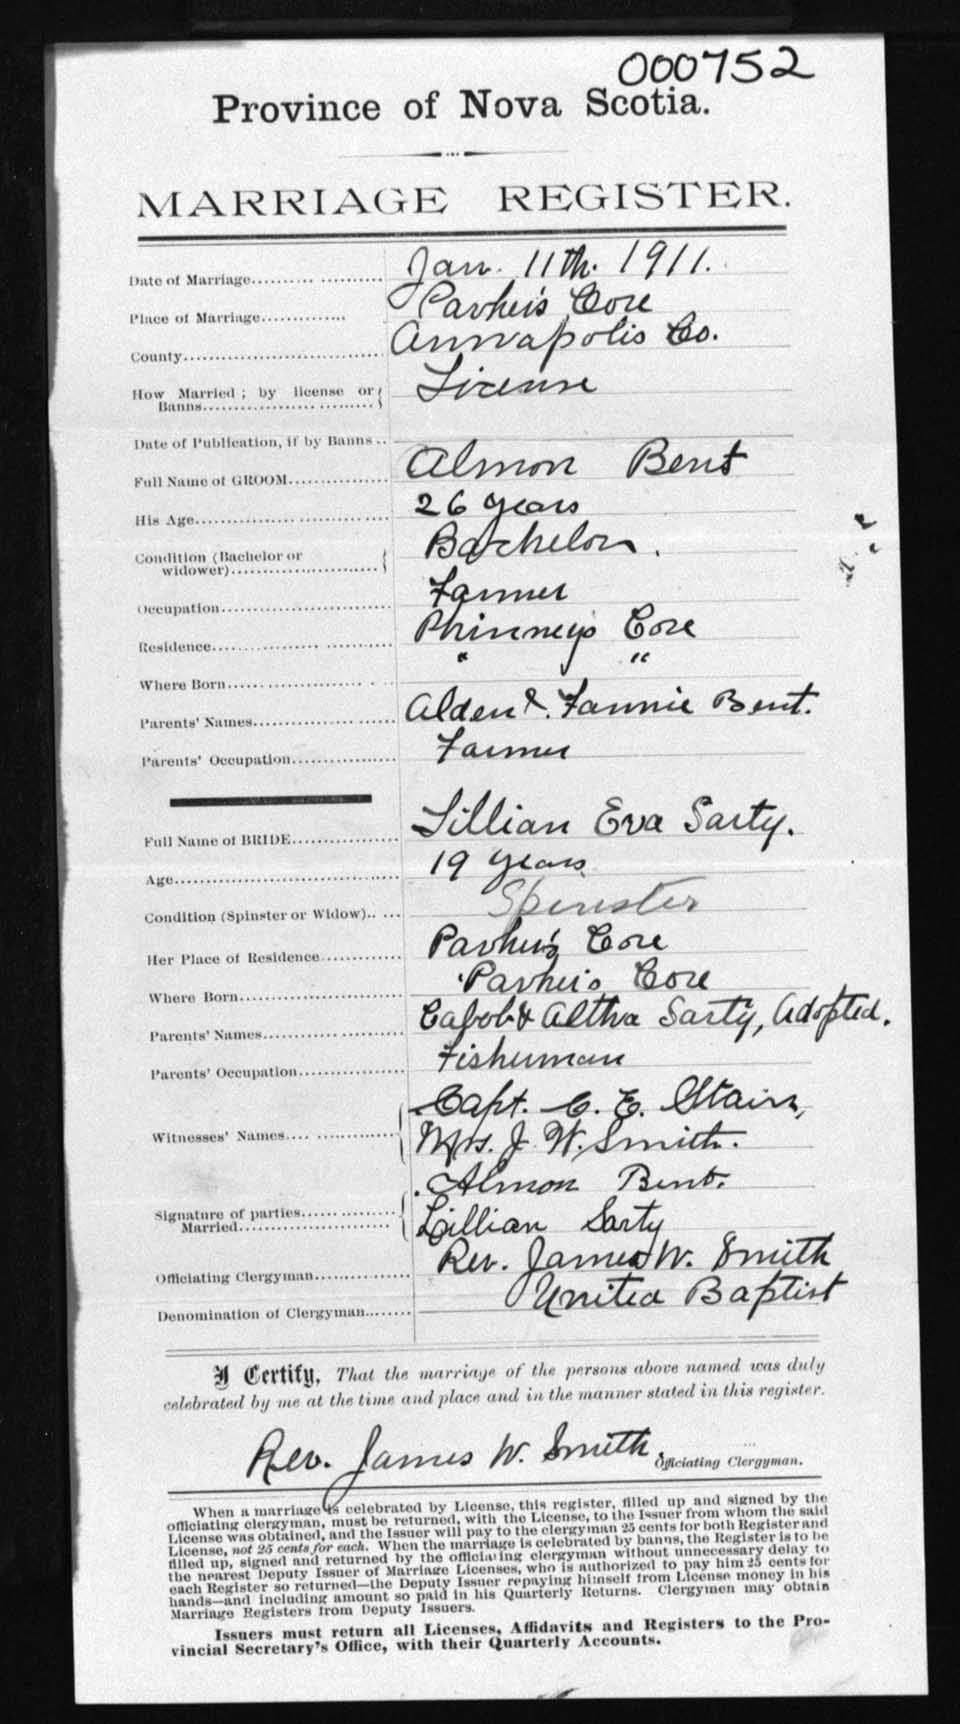 000752
Province of Nova Scotia.
MARRIAGE REGISTER.
Date of Marriage.......... Jan. 11th. 1911.
Place of Marriage............. Parker's Cove
County................................. Annapolis Co.
How Married ; by license or { License
Banns............................. }
Date of Publication, if by Banns ..
Full Name of GROOM................. Almon Bent
His Age................................. 26 years
Condition (Bachelor or { Bachelor.
widower).........................
Occupation............................. Farmer
Residence............................... Phinneys Cove
Where Born............................ " "
Parents' Names....................... Alden & Fannie Bent.
Parents' Occupation.................. Farmer
Full Name of BRIDE.................. Lillian Eva Sarty.
Age........................................ 19 years
Condition (Spinster or Widow).. .... Spinster
Her Place of Residence............. Parker's Cove
Where Born............................ Parker's Cove
Parents' Names....................... & Altha Sarty, Adopted.
Parents' Occupation.................. Fisherman
Capt. C. E. Stairs,
Witnesses' Names.... ............... Mrs. J. W. Smith.
Almon Bent.
Signature of parties................ { Lillian Sarty
Married.............................
Officiating Clergyman............... Rev. James W. Smith
Denomination of Clergyman........ United Baptist
I Certify, That the marriage of the persons above named was duly
celebrated by me at the time and place and in the manner stated in this register.
Rev. James W. Smith. Officiating Clergyman.
When a marriage is celebrated by License, this register, filled up and signed by the
officiating clergyman, must be returned, with the License, to the Issuer from whom the said
License was obtained, and the Issuer will pay to the clergyman 25 cents for both Register and
License, not 25 cents for each. When the marriage is celebrated by banns, the Register is to be
filled up, signed and returned by the officiating clergyman without unnecessary delay to
the nearest Deputy Issuer of Marriage Licenses, who is authorized to pay him 25 cents for
each Register so returned—the Deputy Issuer repaying himself from License money in his
hands—and including amount so paid in his Quarterly Returns. Clergymen may obtain
Marriage Registers from Deputy Issuers.
Issuers must return all Licenses, Affidavits and Registers to the Pro-
vincial Secretary's Office, with their Quarterly Accounts.